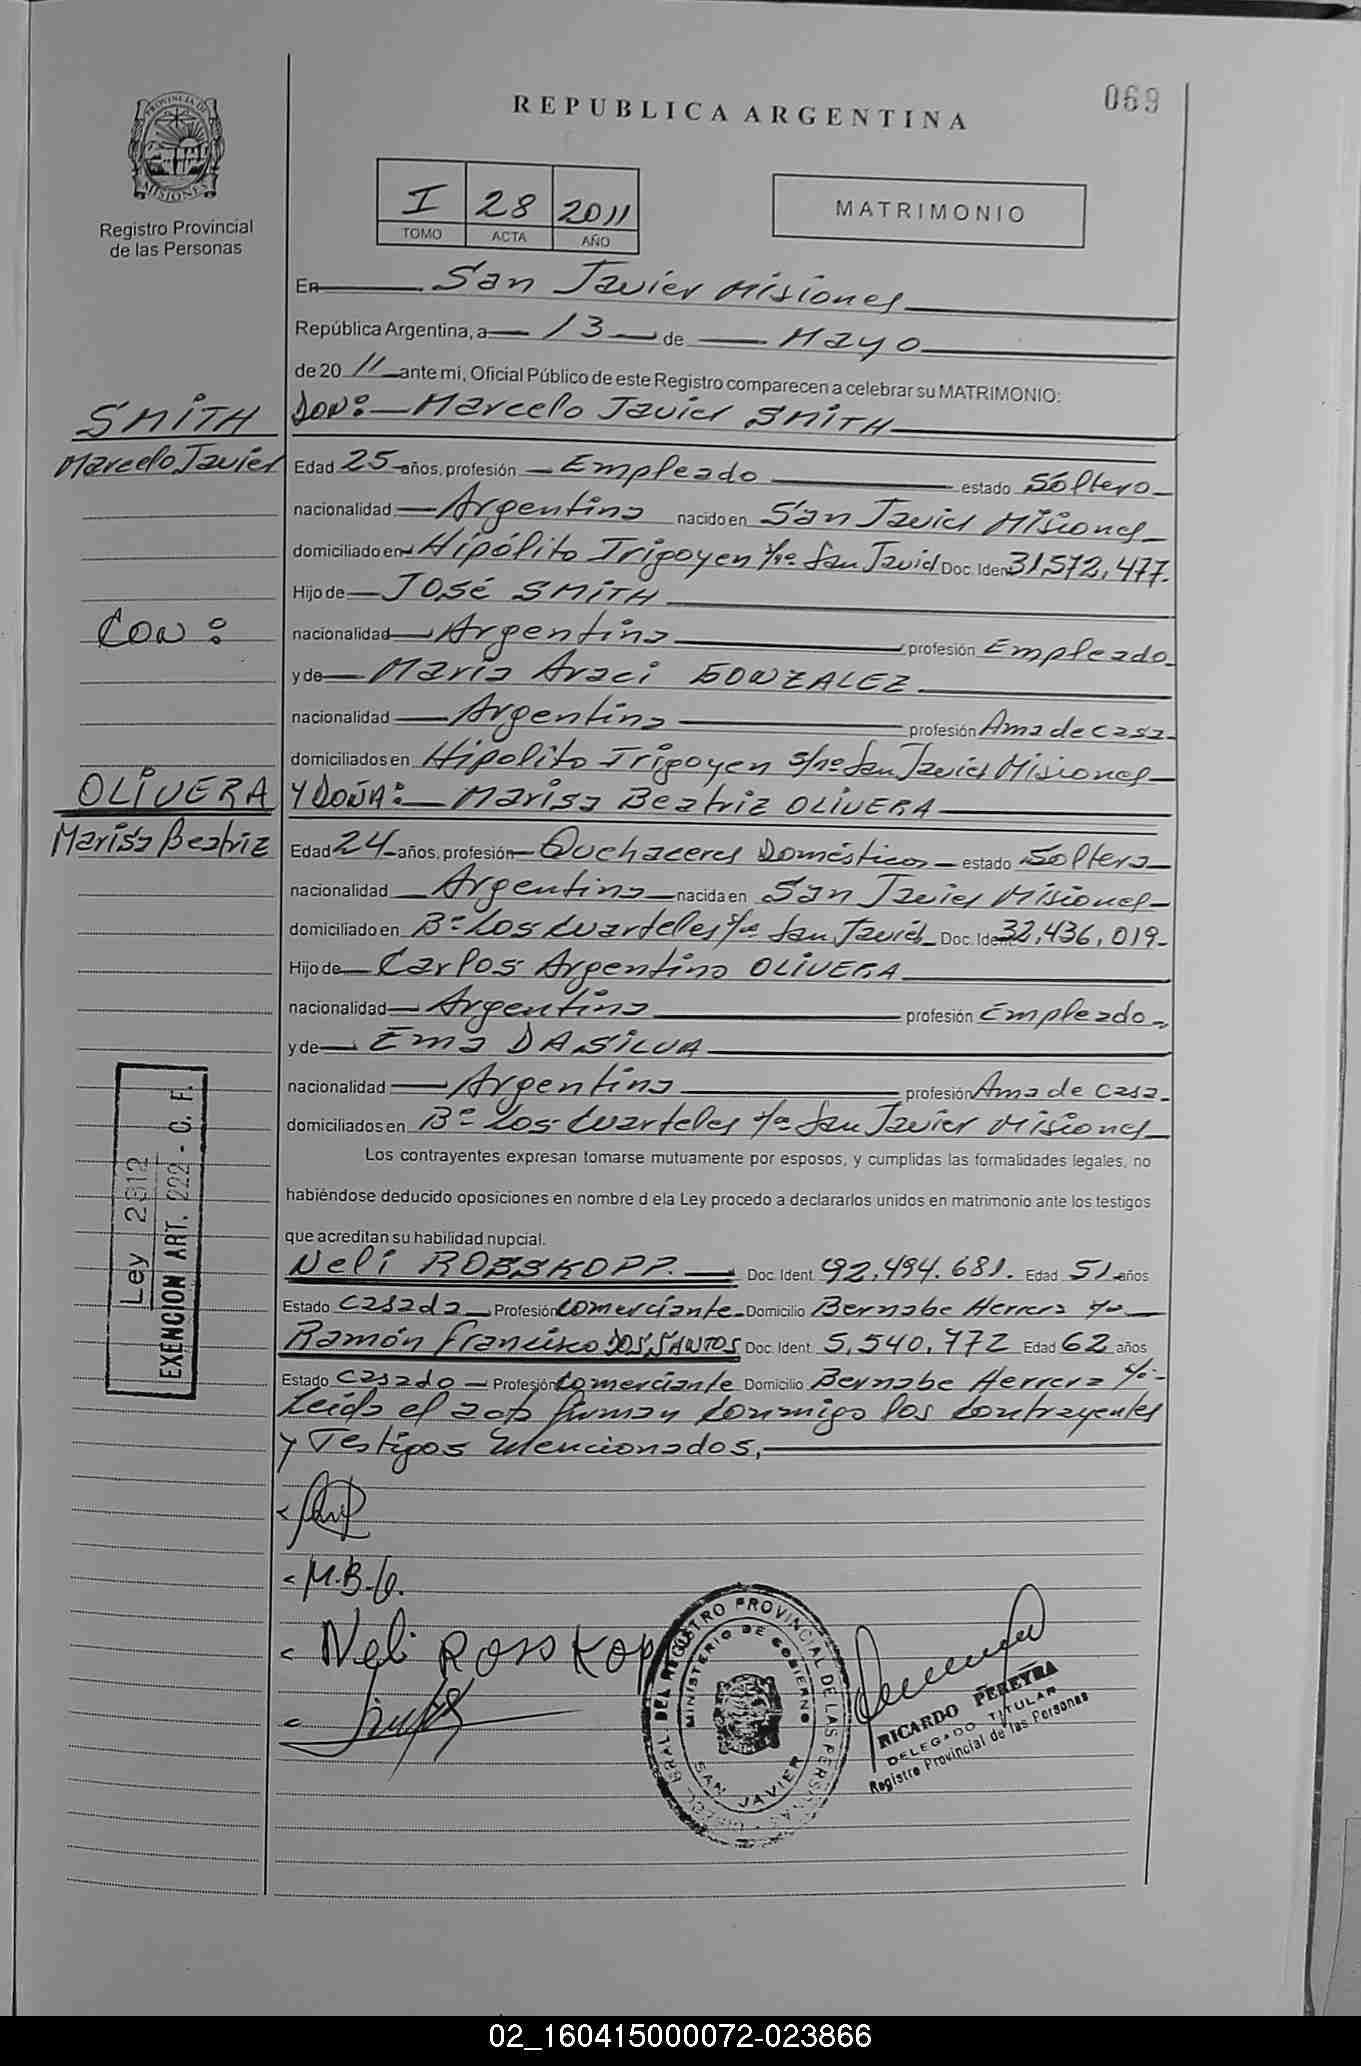 069
REPUBLICA ARGENTINA
PROVINCIA DE
MISIONES
Registro Provincial
de las Personas
I 28 2011
TOMO ACTA AÑO
MATRIMONIO
En San Javier Misiones
República Argentina, a 13 de Mayo
de 20 11 ante mi, Oficial Público de este Registro comparecen a celebrar su MATRIMONIO:
SMITH
DON: Marcelo Javier SMITH
Marcelo Javier
Edad 25 años, profesión Empleado estado Soltero
nacionalidad Argentina nacido en San Javier Misiones
domiciliado en Hipólito Irigoyen s/nº San Javier Doc. Ident 31,572,477.
Hijo de JOSÉ SMITH
CON:
nacionalidad Argentina profesión Empleado
y de Maria Araci GONZALEZ
nacionalidad Argentina profesión Ama de casa
domiciliados en Hipolito Irigoyen s/nº San Javier Misiones
OLIVERA
Y DOÑA: Marisa Beatriz OLIVERA
Marisa Beatriz
Edad 24 años, profesión Quehaceres Domésticos estado Soltera
nacionalidad Argentina nacida en San Javier Misiones
domiciliado en Bº Los Cuarteles s/nº San Javier Doc. Ident 32,436,019
Hijo de Carlos Argentino OLIVERA
nacionalidad Argentina profesión Empleado
y de Ema DASILVA
nacionalidad Argentina profesión Ama de casa
domiciliados en Bº Los Cuarteles s/nº San Javier Misiones
Ley 2912
EXENCION ART. 222 - C. F.
Los contrayentes expresan tomarse mutuamente por esposos, y cumplidas las formalidades legales, no
habiéndose deducido oposiciones en nombre d ela Ley procedo a declararlos unidos en matrimonio ante los testigos
que acreditan su habilidad nupcial.
Neli ROSSKOPP. Doc. Ident. 92,494.681. Edad 51 años
Estado Casada Profesión Comerciante Domicilio Bernabe Herrera s/nº
Ramón Francisco DOS SANTOS Doc. Ident. 5,540,772 Edad 62 años
Estado Casado Profesión Comerciante Domicilio Bernabe Herrera s/nº
Leida el acta firman conmigo los contrayentes
y Testigos mencionados,
M.B.O.
Neli Rosskop
DEL REGISTRO PROVINCIAL DE LAS PERSONAS
MINISTERIO DE GOBIERNO
SAN JAVIER
RICARDO PEREYRA
DELEGADO TITULAR
Registro Provincial de las Personas
02_160415000072-023866